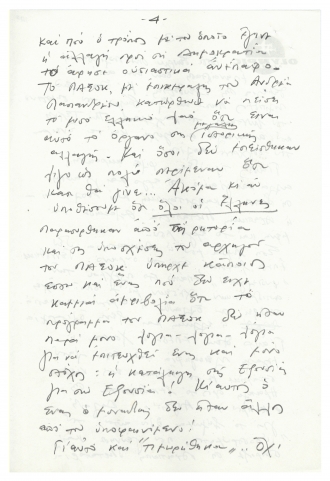 - 4 -
και πού ο τρόπος με τον οποίο έγινε
η αλλαγή προς τη Δημοκρατία
το άφησε ουσιαστικά ανέπαφο.
Το ΠΑΣΟΚ, με επικεφαλής τον Ανδρέα
Παπανδρέου, κατώρθωσε να πείσει
το μισό Ελληνικό λαό ότι είναι
αυτό το όργανο της μεγάλης ιστορικής
αλλαγής. Και όσοι δεν πείσθηκαν
λίγο ως πολύ περίμεναν ότι
κάτι θα γίνει... Ακόμα κι αν
υποθέσουμε ότι όλοι οι Έλληνες
παρασύρθηκαν από τη ρητορία
και τις υποσχέσεις του αρχηγού
του ΠΑΣΟΚ υπήρχε κάποιος
έστω και ένας που δεν είχε
καμμιά αμφιβολία ότι το
πρόγραμμα του ΠΑΣΟΚ δεν ήταν
παρά μόνο λόγια - λόγια - λόγια
για να επιτευχθεί ένας και μόνο
στόχος: η κατάληψη της Εξουσίας
για την Εξουσία! Κι αυτός ο
ένας ο μοναδικός δεν ήταν άλλος
από τον υποφαινόμενο!
Γι αυτό και "τιμωρήθηκα"... Όχι